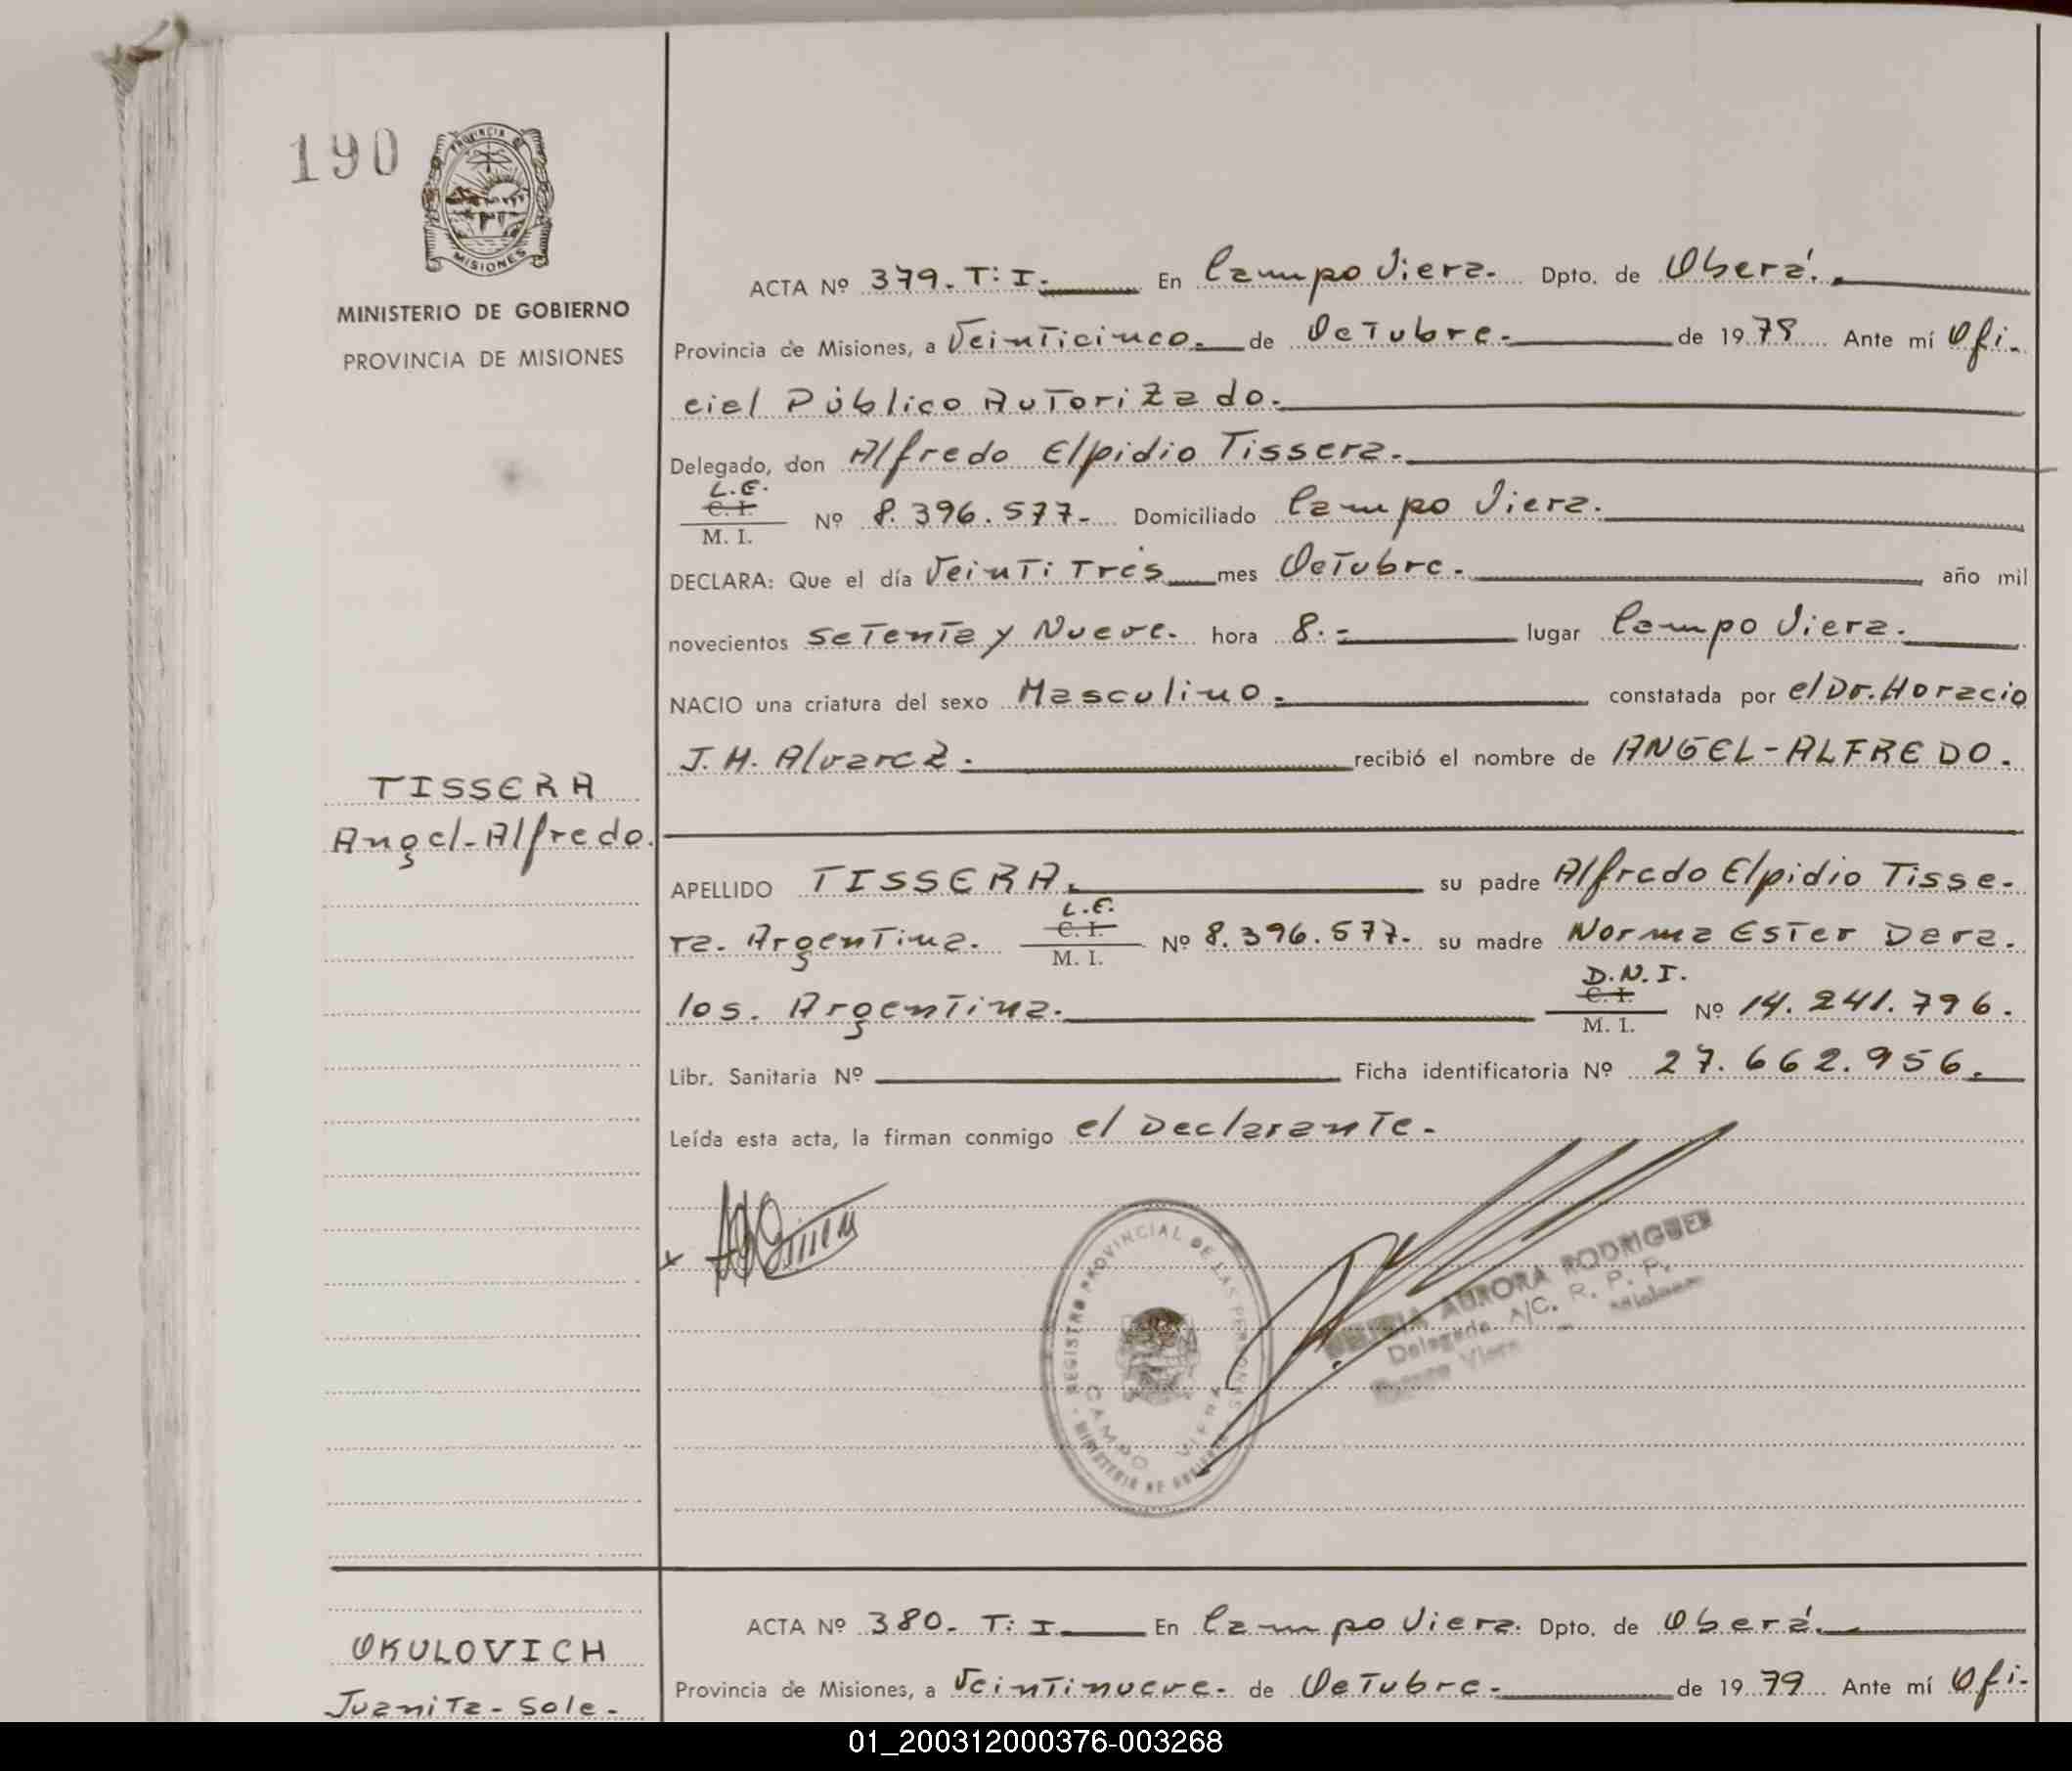 190
PROVINCIA DE
MISIONES
MINISTERIO DE GOBIERNO
PROVINCIA DE MISIONES
ACTA Nº 379. T: I. En Campo Viera. Dpto. de Oberá.
Provincia de Misiones, a Veinticinco. de Octubre. de 1979 Ante mí Ofi-
cial Público Autorizado.
Delegado, don Alfredo Elpidio Tissera.
L.E.
C. I.
M. I.
Nº 8.396.577- Domiciliado Campo Viera.
DECLARA: Que el día Veinti Trés mes Octubre. año mil
novecientos Setenta y Nueve. hora 8.- lugar Campo Viera.
NACIO una criatura del sexo Masculino. constatada por el Dr. Horacio
J. H. Alvarez. recibió el nombre de ANGEL-ALFREDO.
TISSERA
Angel-Alfredo.
APELLIDO TISSERA. su padre Alfredo Elpidio Tisse-
L.E.
C. I.
ra. Argentina. M. I. Nº 8.396.577- su madre Norma Ester Dava-
D.N.I.
C. I.
los. Argentina. M. I. Nº 14.241.796.
Libr. Sanitaria Nº Ficha identificatoria Nº 27.662.956.
Leída esta acta, la firman conmigo el Declarante.
REGISTRO PROVINCIAL DE LAS PERSONAS
CAMPO VIERA
MINISTERIO DE GOBIERNO
AURORA RODRIGUEZ
Delegada A/C. R. P. P.
Viera Misiones
ACTA Nº 380. T: I. En Campo Viera. Dpto. de Oberá.
OKULOVICH
Provincia de Misiones, a Veintinueve. de Octubre. de 1979 Ante mí Ofi-
Juanita-Sole-
01_200312000376-003268